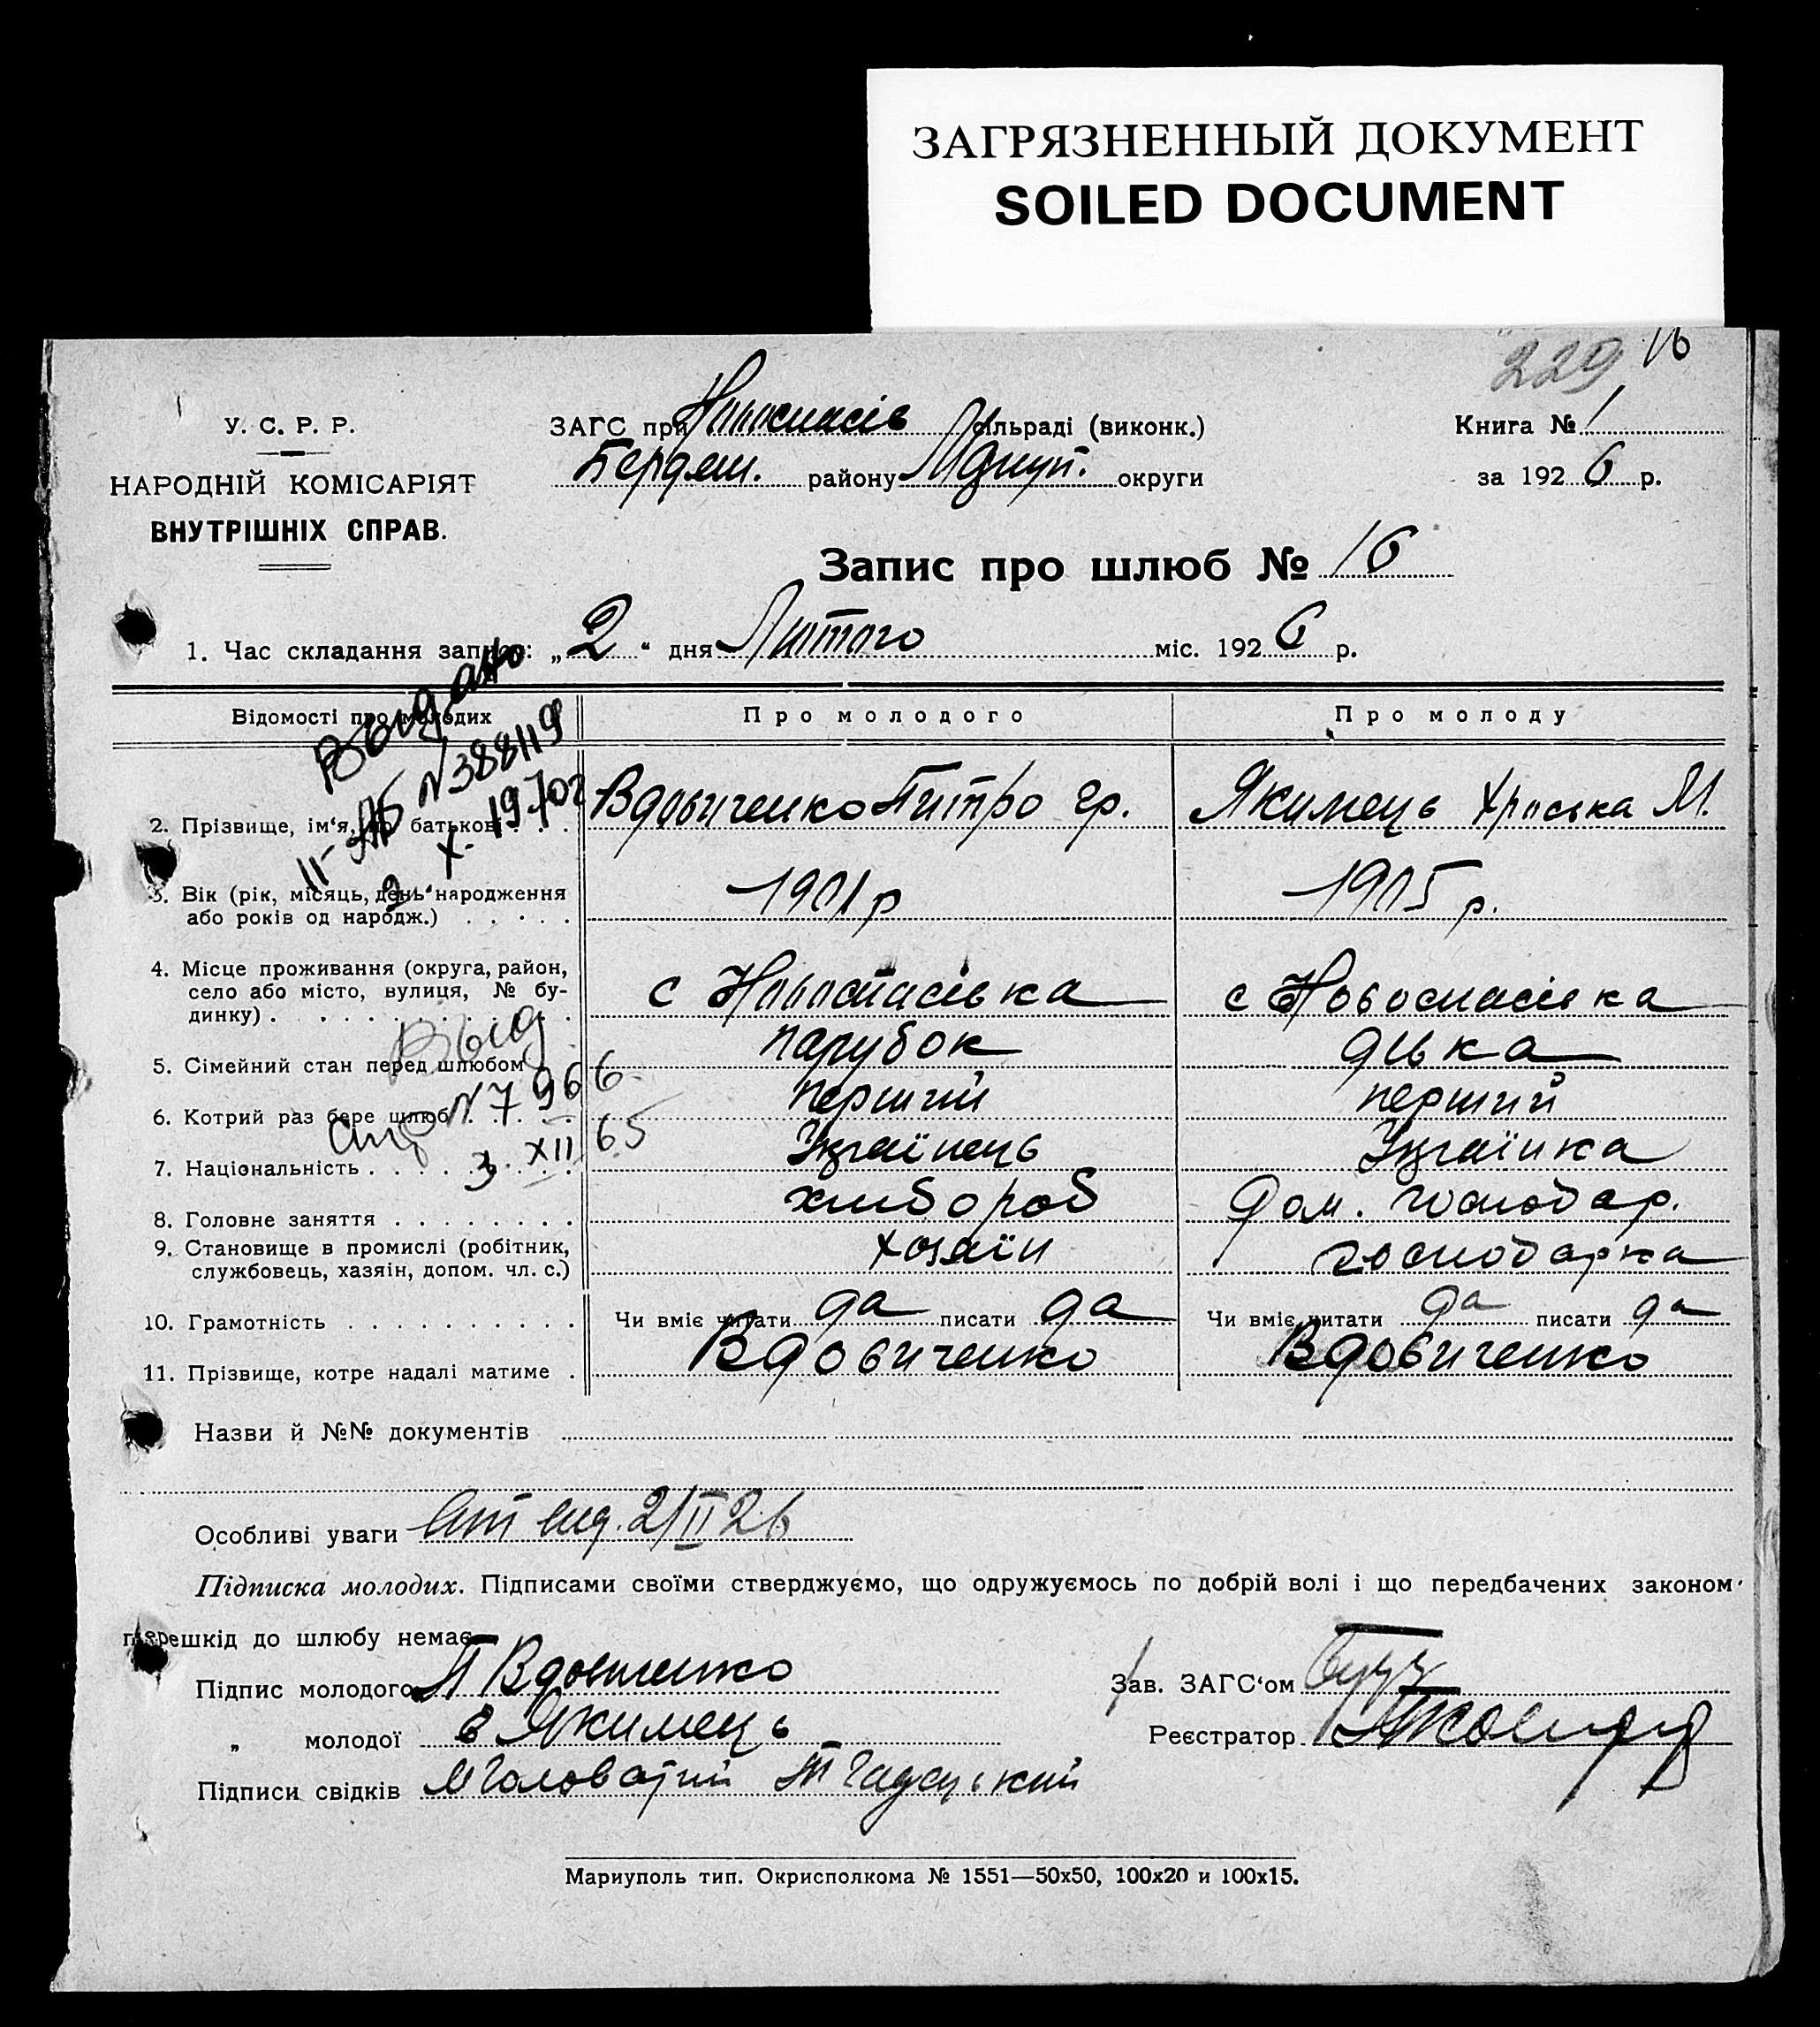 ЗАГРЯЗНЕННЫЙ ДОКУМЕНТ
SOILED DOCUMENT
229 16
У. С. Р. Р.
НАРОДНІЙ КОМІСАРІЯТ
ВНУТРІШНІХ СПРАВ.
ЗАГС при Новоспасів сільраді (виконк.)
Бердян. району Маріуп. округи
Книга № 1
за 1926 р.
Запис про шлюб № 16
1. Час складання запису: „2“ дня Лютого міс. 1926 р.
Відомості про молодих
Про молодого
Про молоду
Выдано
II-АБ N388119
2. X. 1970г
2. Прізвище, ім‘я, по батькові . . . Вдовиченко Питро Гр. Якимець Хриська М.
3. Вік (рік, місяць, день народження
або років од народж.) . . . . . 1901 р 1905 р.
4. Місце проживання (округа, район,
село або місто, вулиця, № бу-
динку) . . . . . . . . . . с Новоспасівка с Новоспасівка
Выд
5. Сімейний стан перед шлюбом парубок дівка
N 7966
6. Котрий раз бере шлюб . . . . . перший перший
3 XII 65
7. Національність . . . . . . . . Українець Українка
8. Головне заняття . . . . . . . . хлибороб Дом. господар.
9. Становище в промислі (робітник,
службовець, хазяін, допом. чл. с.) хозяїн господарка
10. Грамотність . . . . . . . . . . Чи вміє читати да писати да Чи вміє читати да писати да
11. Прізвище, котре надалі матиме . Вдовиченко Вдовиченко
Назви й №№ документів
Особливі уваги 2/II 26
Підписка молодих. Підписами своїми стверджуємо, що одружуємось по добрій волі і що передбачених законом
перешкід до шлюбу немає.
Підпис молодого П Вдовиченко
Зав. ЗАГС‘ом
„ молодої Якимець
Реєстратор
Підписи свідків Головатий
Мариуполь тип. Окрисполкома № 1551—50х50, 100х20 и 100х15.